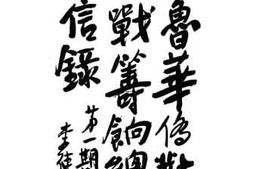 魯華僑
戰籌餉總
信錄
第一期
李